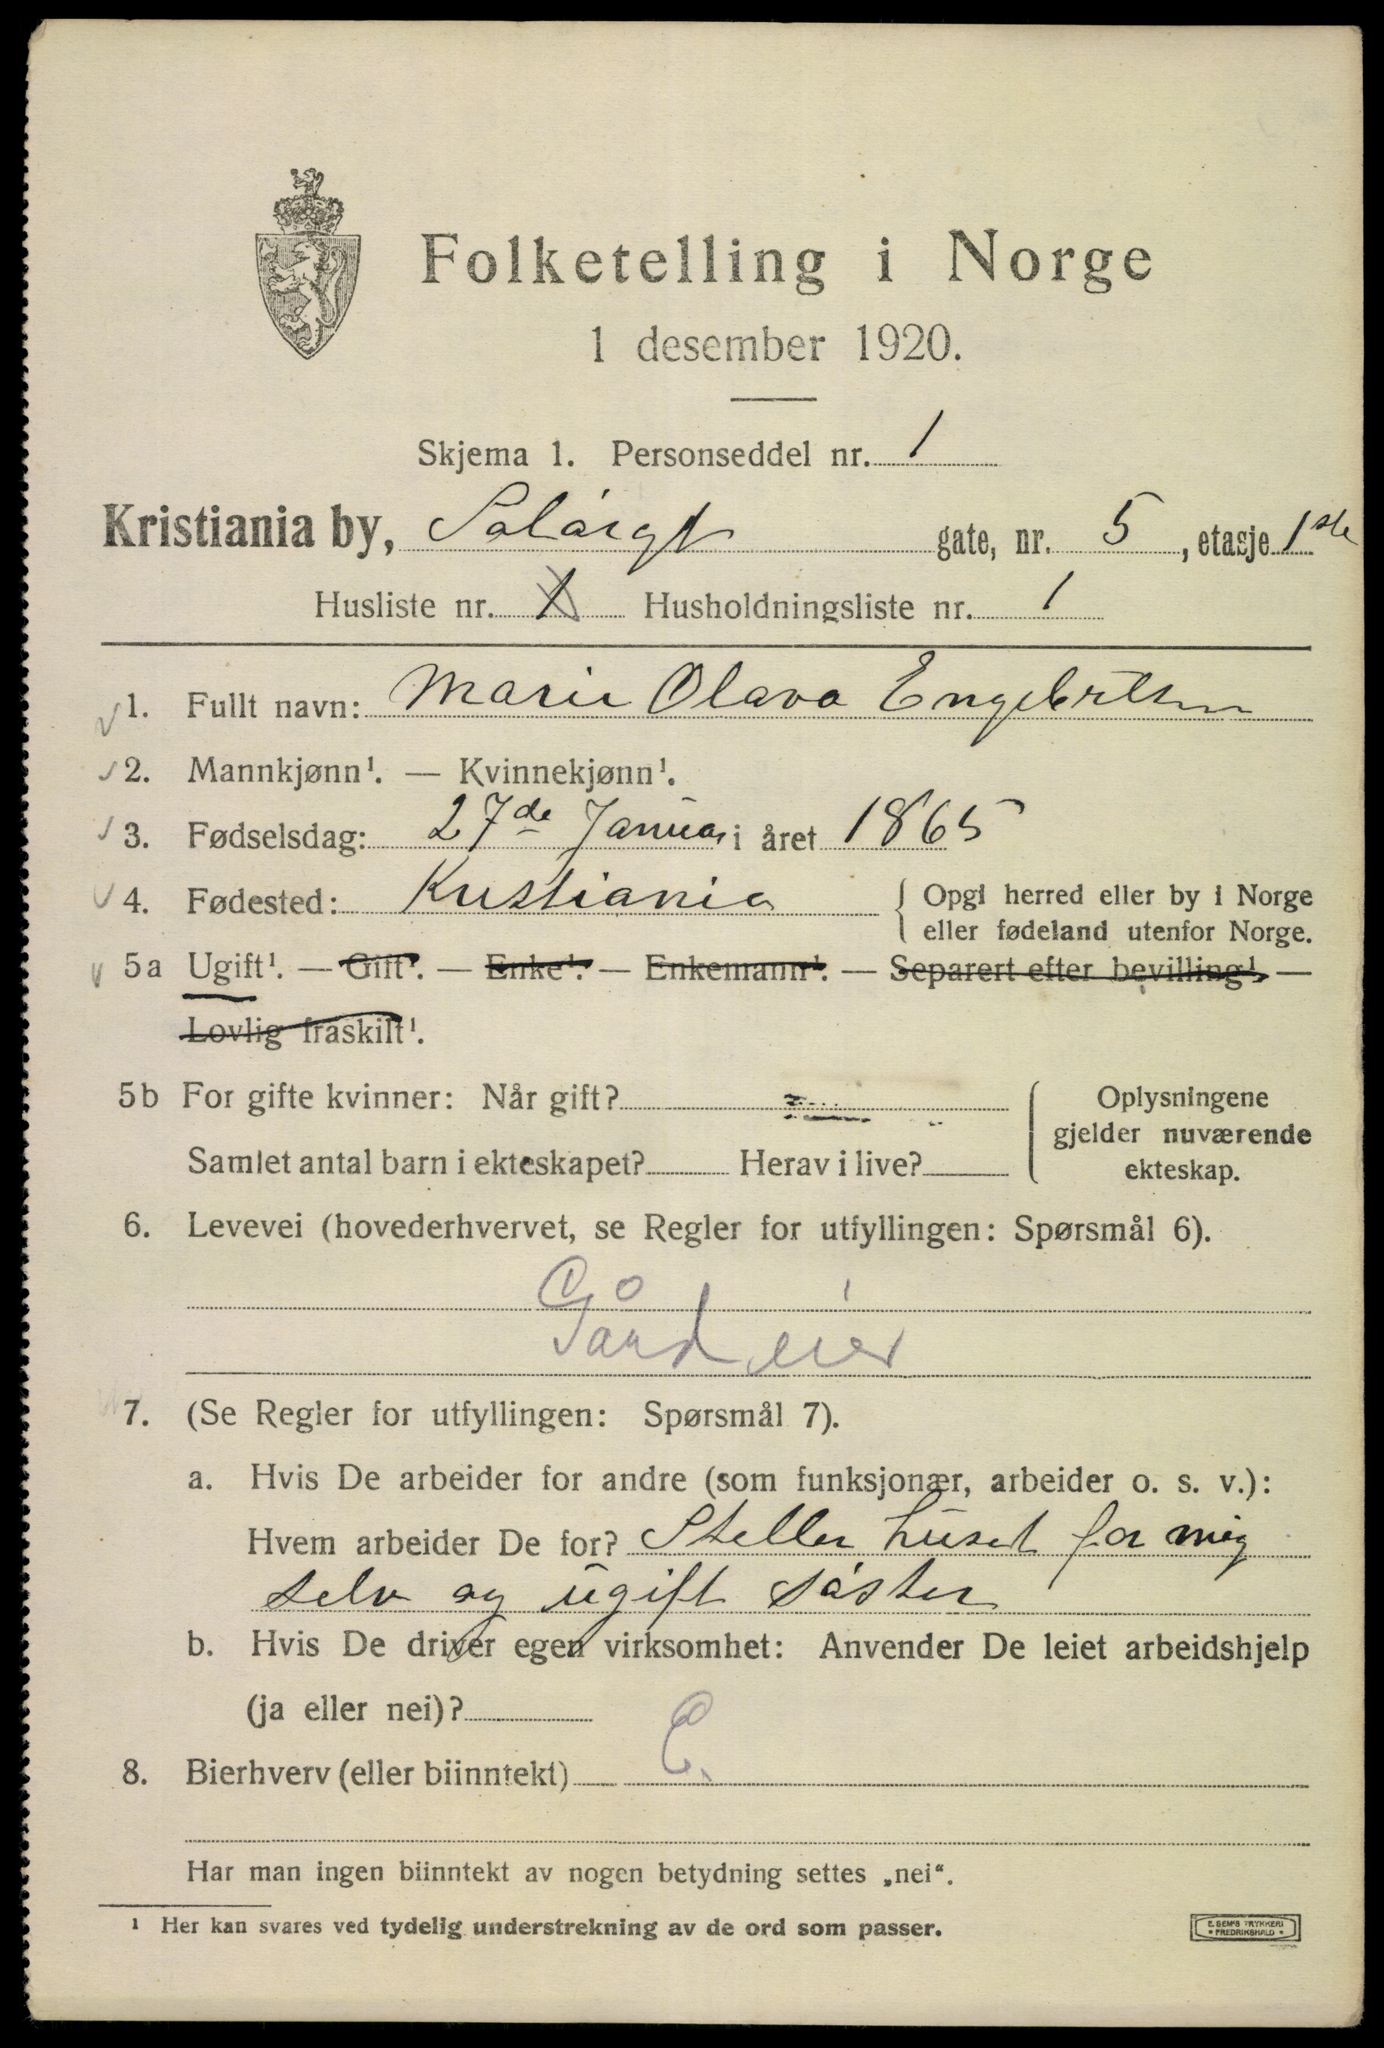 Folketelling i Norge
1 desember 1920.
Skjema 1. Personseddel nr. 1
Kristiania by, Solørgt gate, nr. 5, etasje 1ste
Husliste nr. 1 Husholdningsliste nr. 1
1. Fullt navn: Marie Olava Engebretsen
2. Mannkjønn¹. — Kvinnekjønn¹.
3. Fødselsdag: 27de Januar i året 1865
4. Fødested: Kristiania { Opgi herred eller by i Norge
eller fødeland utenfor Norge.
5a Ugift¹. — Gift¹. — Enke¹. — Enkemann¹. — Separert efter bevilling¹. —
Lovlig fraskilt¹.
5b For gifte kvinner: Når gift?
Samlet antal barn i ekteskapet? Herav i live?
Oplysningene
gjelder nuværende
ekteskap.
6. Levevei (hovederhvervet, se Regler for utfyllingen: Spørsmål 6).
Gårdeier
7. (Se Regler for utfyllingen: Spørsmål 7).
a. Hvis De arbeider for andre (som funksjonær, arbeider o. s. v.):
Hvem arbeider De for? Steller huset for mig
selv og ugift søster
b. Hvis De driver egen virksomhet: Anvender De leiet arbeidshjelp
(ja eller nei)?
E.
8. Bierhverv (eller biinntekt)
Har man ingen biinntekt av nogen betydning settes „nei“.
¹ Her kan svares ved tydelig understrekning av de ord som passer.
E. SEM'S TRYKKERI
FREDRIKSHALD